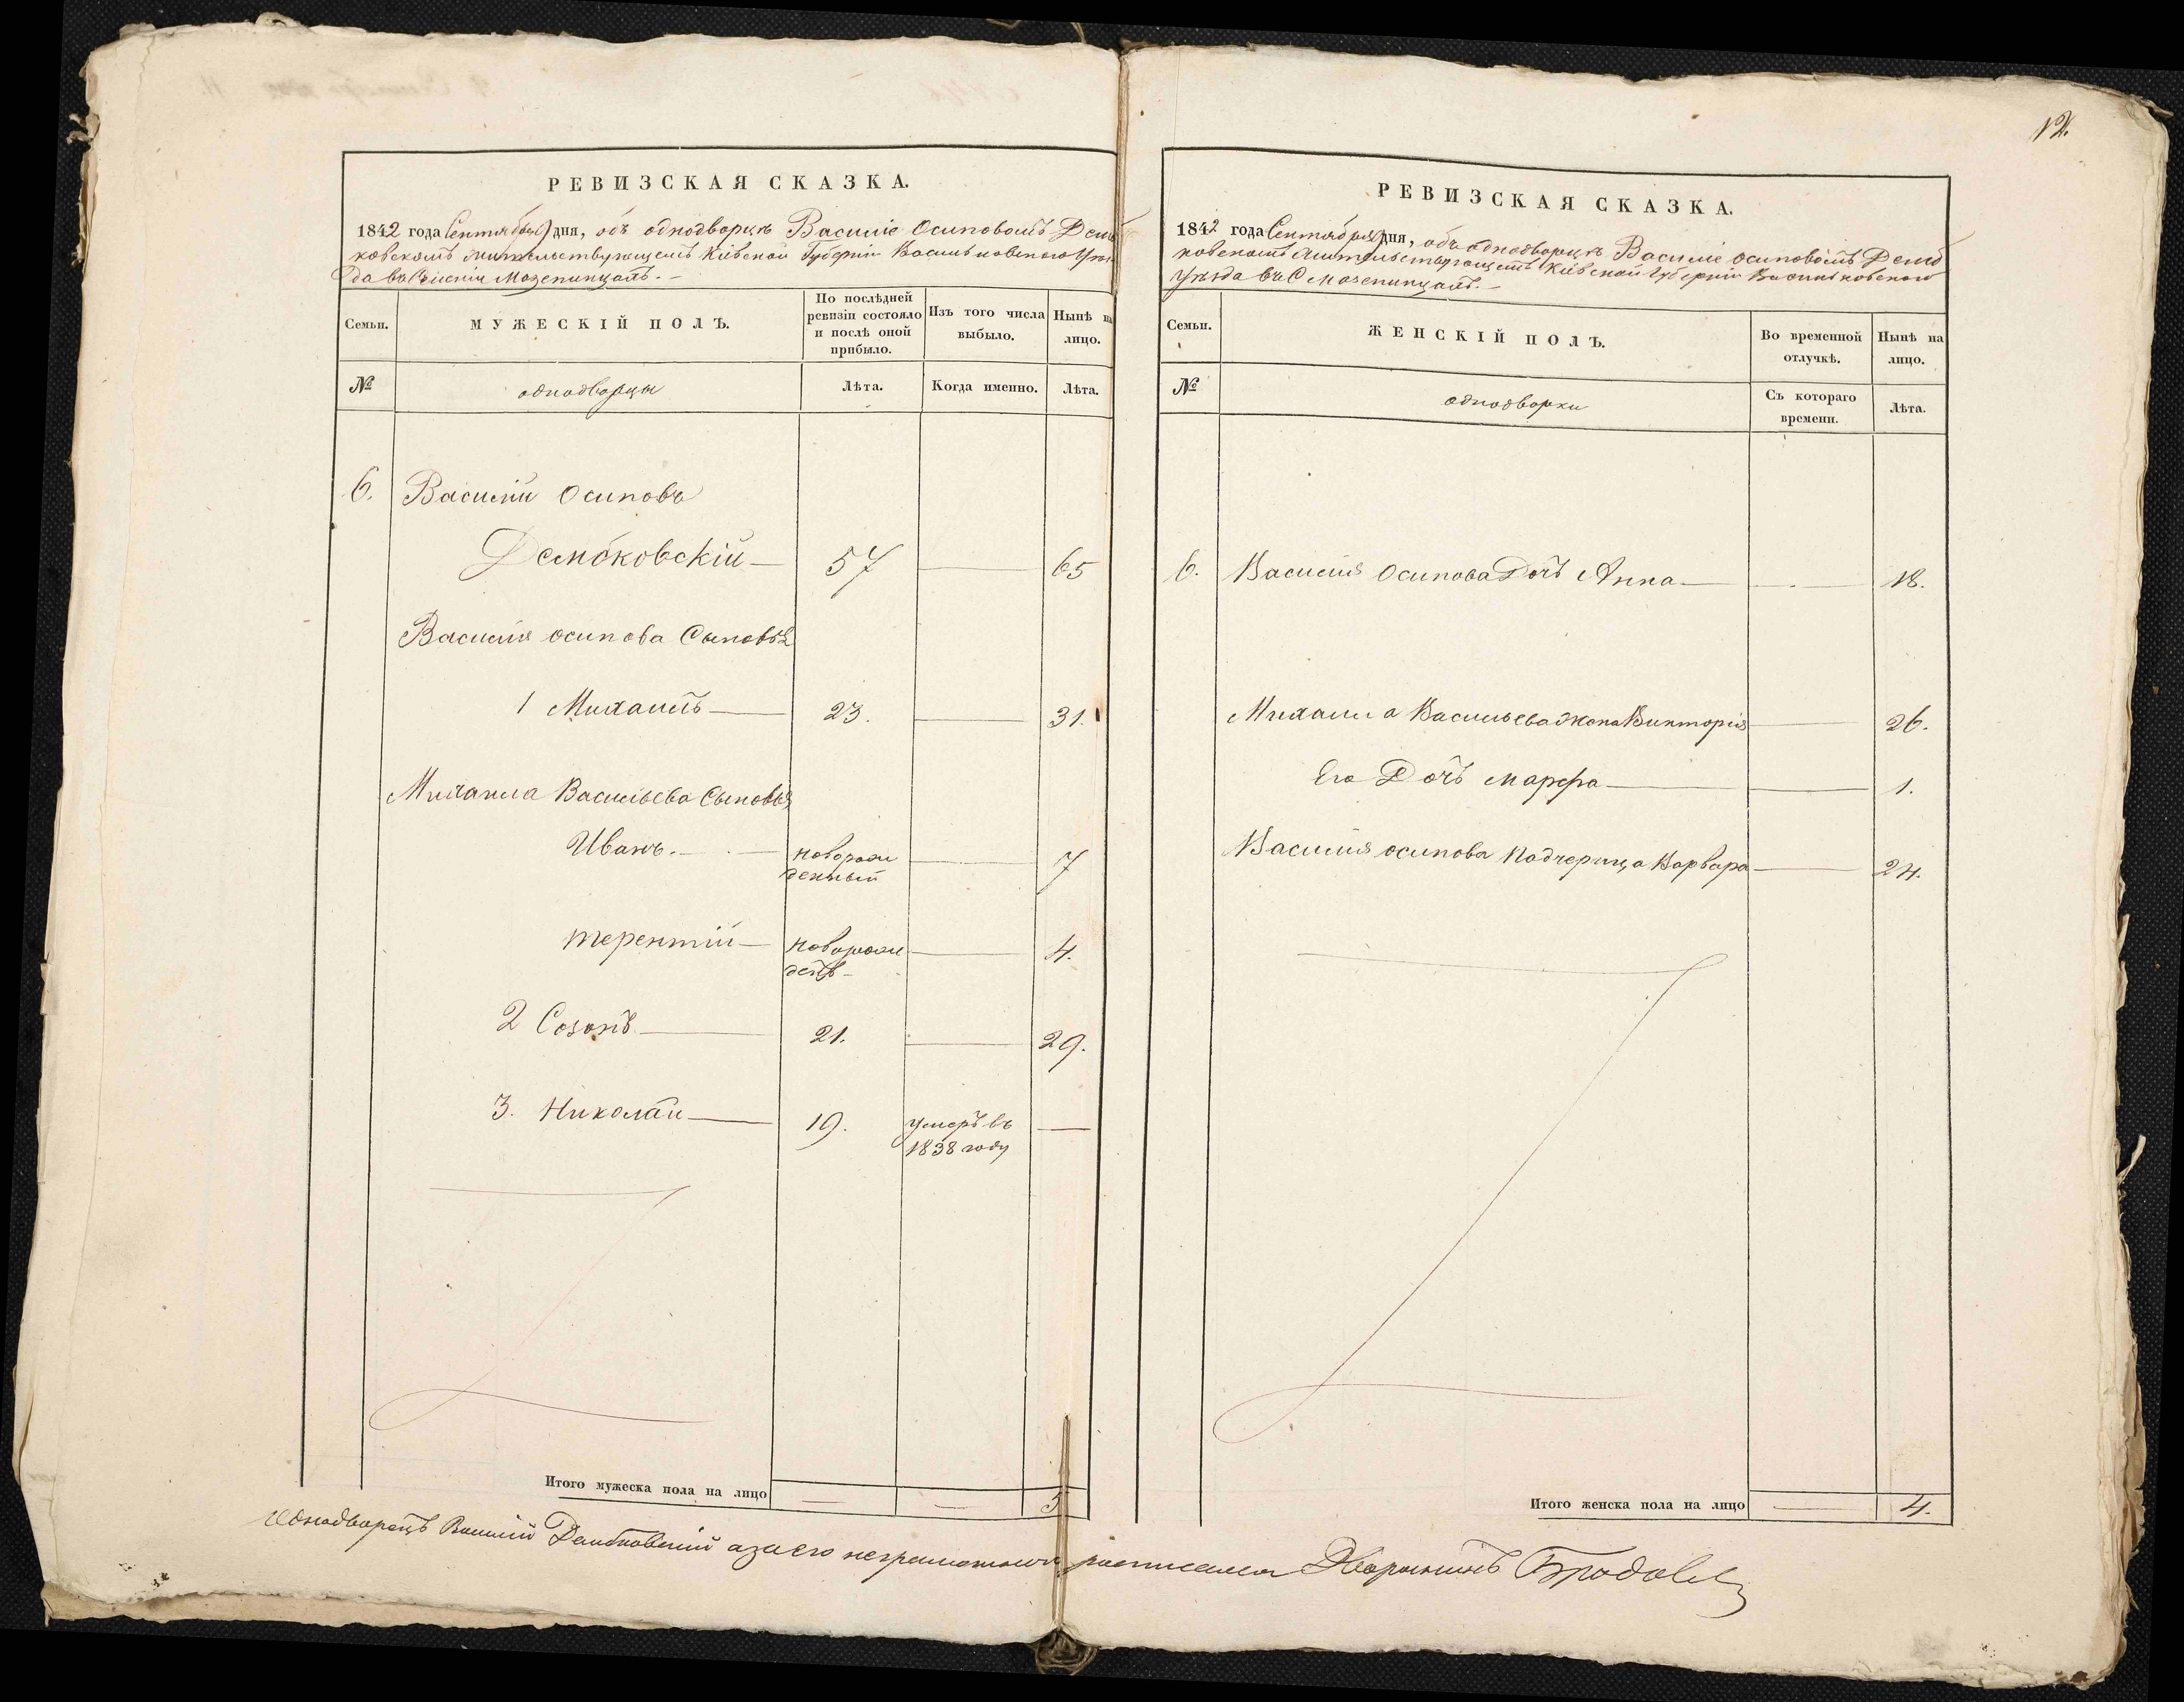 12.
РЕВИЗСКАЯ СКАЗКА.
1842 года Сентября 9 дня, объ однодворцѣ Василіе Осиповомъ Демб
ковскомъ жительствующемъ Кіевской Губерніи Васильковского Уѣз
да въ Селеніи Мазепинцахъ. —
Семьи.
МУЖЕСКІЙ ПОЛЪ.
По послѣдней ревизіи состояло и послѣ оной прибыло.
Изъ того числа выбыло.
Нынѣ на лицо.
№
однодворцы
Лѣта.
Когда именно.
Лѣта.
6. Василій Осиповъ
Дембковскій — 57 — 65
Василія осипова Сыновья
1 Михаилъ — 23. — 31.
Михаила Васильева Сыновья
Иванъ. — новорож
денный — 7
терентій — новорож
денъ — 4.
2 Созонъ — 21. — 29.
3. Николай — 19. умеръ въ
1838 году —
Итого мужеска пола на лицо — — 5
РЕВИЗСКАЯ СКАЗКА.
1842 года Сентября 9 дня, объ однодворцѣ Василіе осиповомъ Демб
ковскомъ жительствующемъ Кіевской Губерніи Васильковского
Уѣзда въ С Мазепинцахъ. —
Семьи.
ЖЕНСКІЙ ПОЛЪ.
Во временной отлучкѣ.
Нынѣ на лицо.
№
однодворки
Съ котораго времени.
Лѣта.
6. Василія Осипова Дочь Анна — — 18.
Михаила Васильева жона Викторія — 26.
Его Дочь марфа — — 1.
Василія осипова Падчерица Варвара — 24.
Итого женска пола на лицо — 4.
Однодворецъ Василій Дембковский а за его неграмотного росписался Дворянинъ